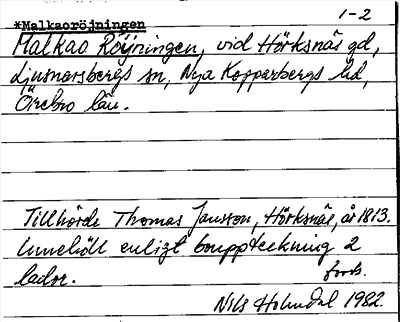 1-2
*Malkaoröjningen
Malkao Röjningen, vid Hörksnäs gd,
Ljusnarsbergs sn, Nya Kopparbergs hd,
Örebro län.
Tillhörde Thomas Jansson, Hörksnäs, år 1813.
Innehöll enligt bouppteckning 2
lador.
forts.
Nils Holmdal 1982.